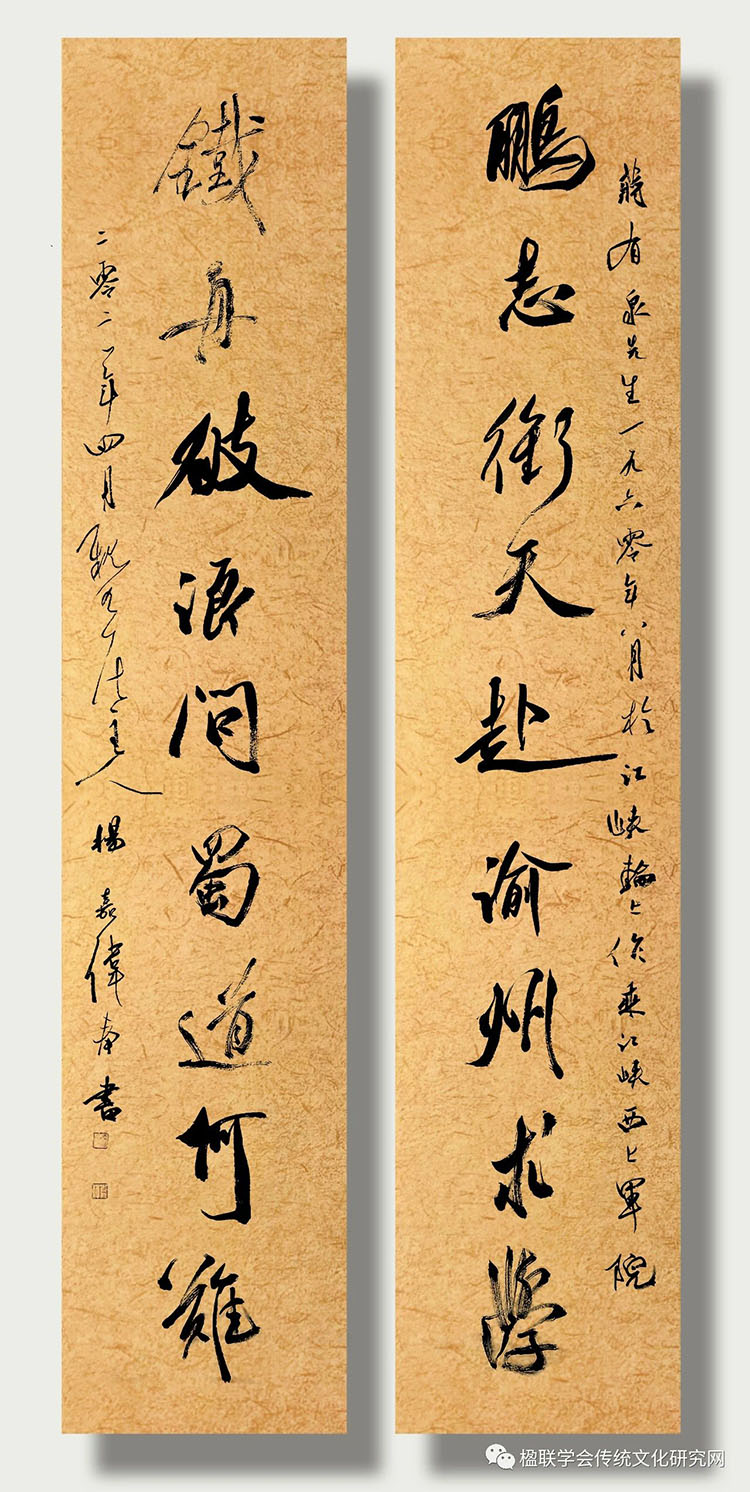 蔣有泉先生一九六零年八月於江峽輪上作乘江峽西上軍院
鵬志衝天赴渝州求學
鐵舟破浪問蜀道何難
二零二一年四月 主人 楊嘉偉 書
楹联学会传统文化研究网